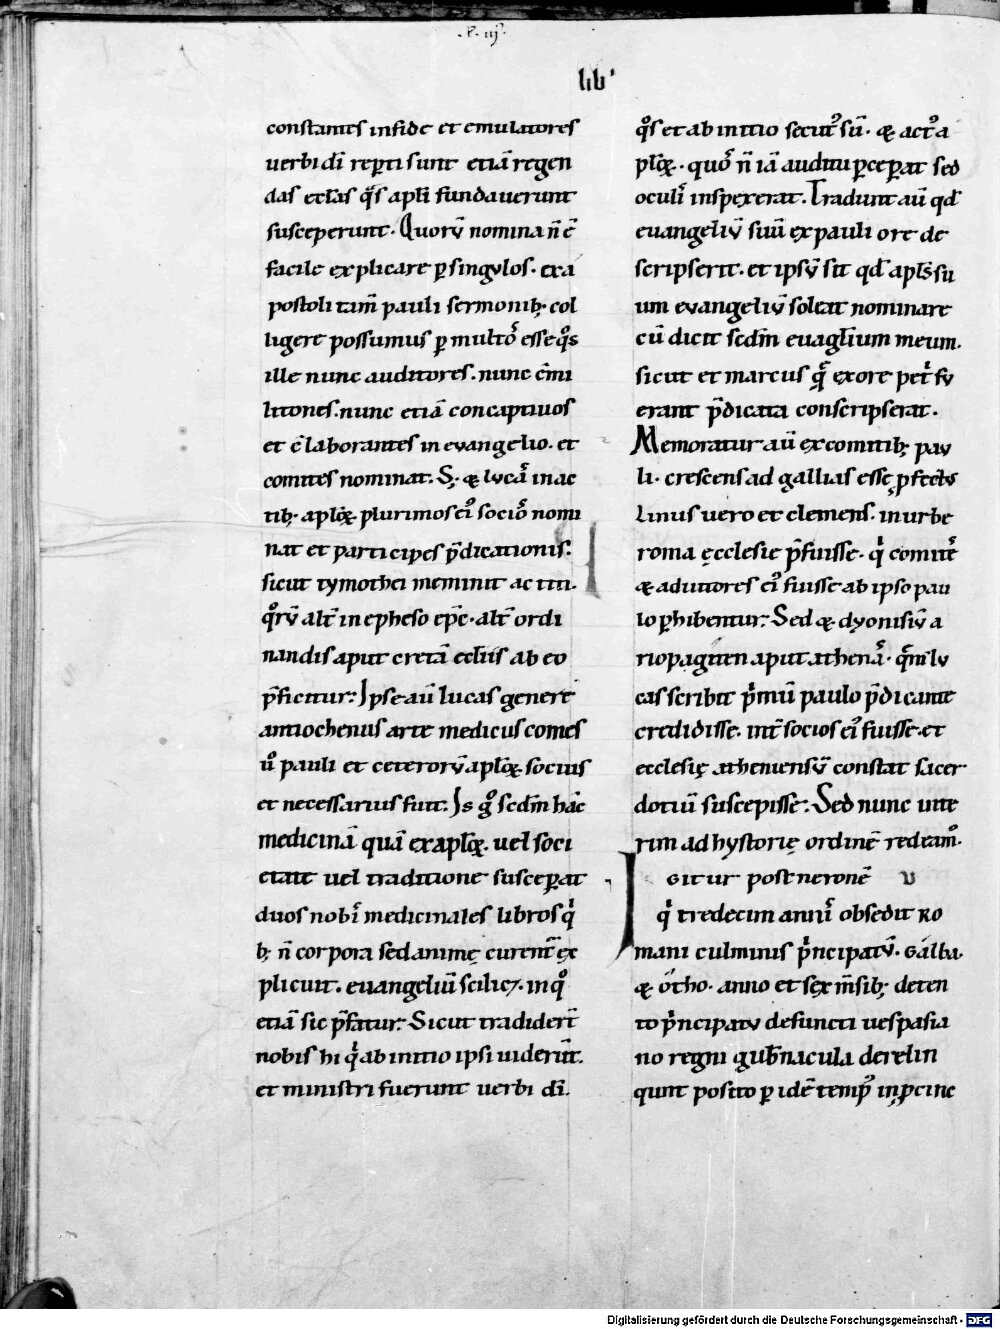 .P. iij.
lib'
constantes in fide et emulatores
uerbi dī rep̱ti sunt etiā regen
das eccl̄as q̊s apl̄i fundauerunt
susceperunt. Quorū nomina n̄ ē
facile explicare p̱ singulos. ex a
postoli tam̄ pauli sermonib; col
ligere possumus p̱ multos esse q̊s
ille nunc auditores. nunc c̄mi
litones. nunc etiā concaptiuos
et c̄laborantes in euangelio. et
comites nominat. S; & lucas in ac
tib; aplo℞. plurimos ei' socios nomi
nat et participes p̄dicationis.
sicut tymothei meminit ac titi.
q̊rū alt̄ in epheso ep̄c. alt̄ ordi
nandis aput cretā eccl̄iis ab eo
p̄ficitur. Ipse aū lucas genere
antiochenus arte medicus comes
ů pauli et ceterorū aplo℞ socius
et necessarius fuit. Is g̊ scd̄m hāc
medicinā quā ex aplo℞. uel soci
etate uel traditione suscep̱at
duos nobis medicinales libros qi
b; n̄ corpora sed animę curent̄ ex
plicuit. euangeliū scilic&. in q̊
etiā sic p̄fatur. Sicut tradider̄t
nobis hi qi ab initio ipsi uiderūt.
et ministri fuerunt uerbi dī.
q̊s et ab initio secut' sū. & act' a
plo℞. quos n̄ iā auditu p̱cep̱at sed
oculis inspexerat. Tradunt aū qd̄
euangeliū suū ex pauli ore de
scripserit. et ipsū sit qd̄ apl̄s su
um euangeliū soleat nominare
cū dicit scd̄m euāgl̄ium meum.
sicut et marcus q̄ ex ore petri fu
erant p̄dicata conscripserat.
Memoratur aū ex comitib; pau
li. crescens ad gallias esse p̱fectus
Linus uero et clemens. in urbe
roma ęcclesie p̄fuisse. qi comites
& adiutores ei' fuisse ab ipso pau
lo p̱hibentur. Sed & dyonisiū a
riopagiten aput athenas. quē lu
cas scribit pimū paulo p̄dicante
credidisse. int̄ socios ei' fuisse. et
ecclesię atheniensiū constat sacer
dotiū suscepisse. Sed nunc inte
rim ad hystorię ordinē redeam'.
IGITUR post neronē V
qi tredecim annis obsedit Ro
mani culminis pincipatū. Galba
& otho. anno et sex m̄sib; deten
to pincipatu defuncti uespasia
no regni gub̄nacula derelin
qunt posito p̱ idē temp' in p̱cinc
Digitalisierung gefördert durch die Deutsche Forschungsgemeinschaft - DFG